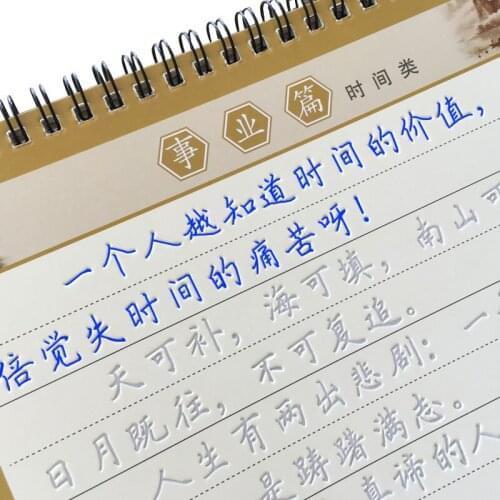 事业篇 时间类
一个人越知道时间的价值，
倍觉失时间的痛苦呀！
天可补，海可填，南山可
日月既往，不可复追。
人生有两出悲剧：一
是踌躇满志。
真谛的人